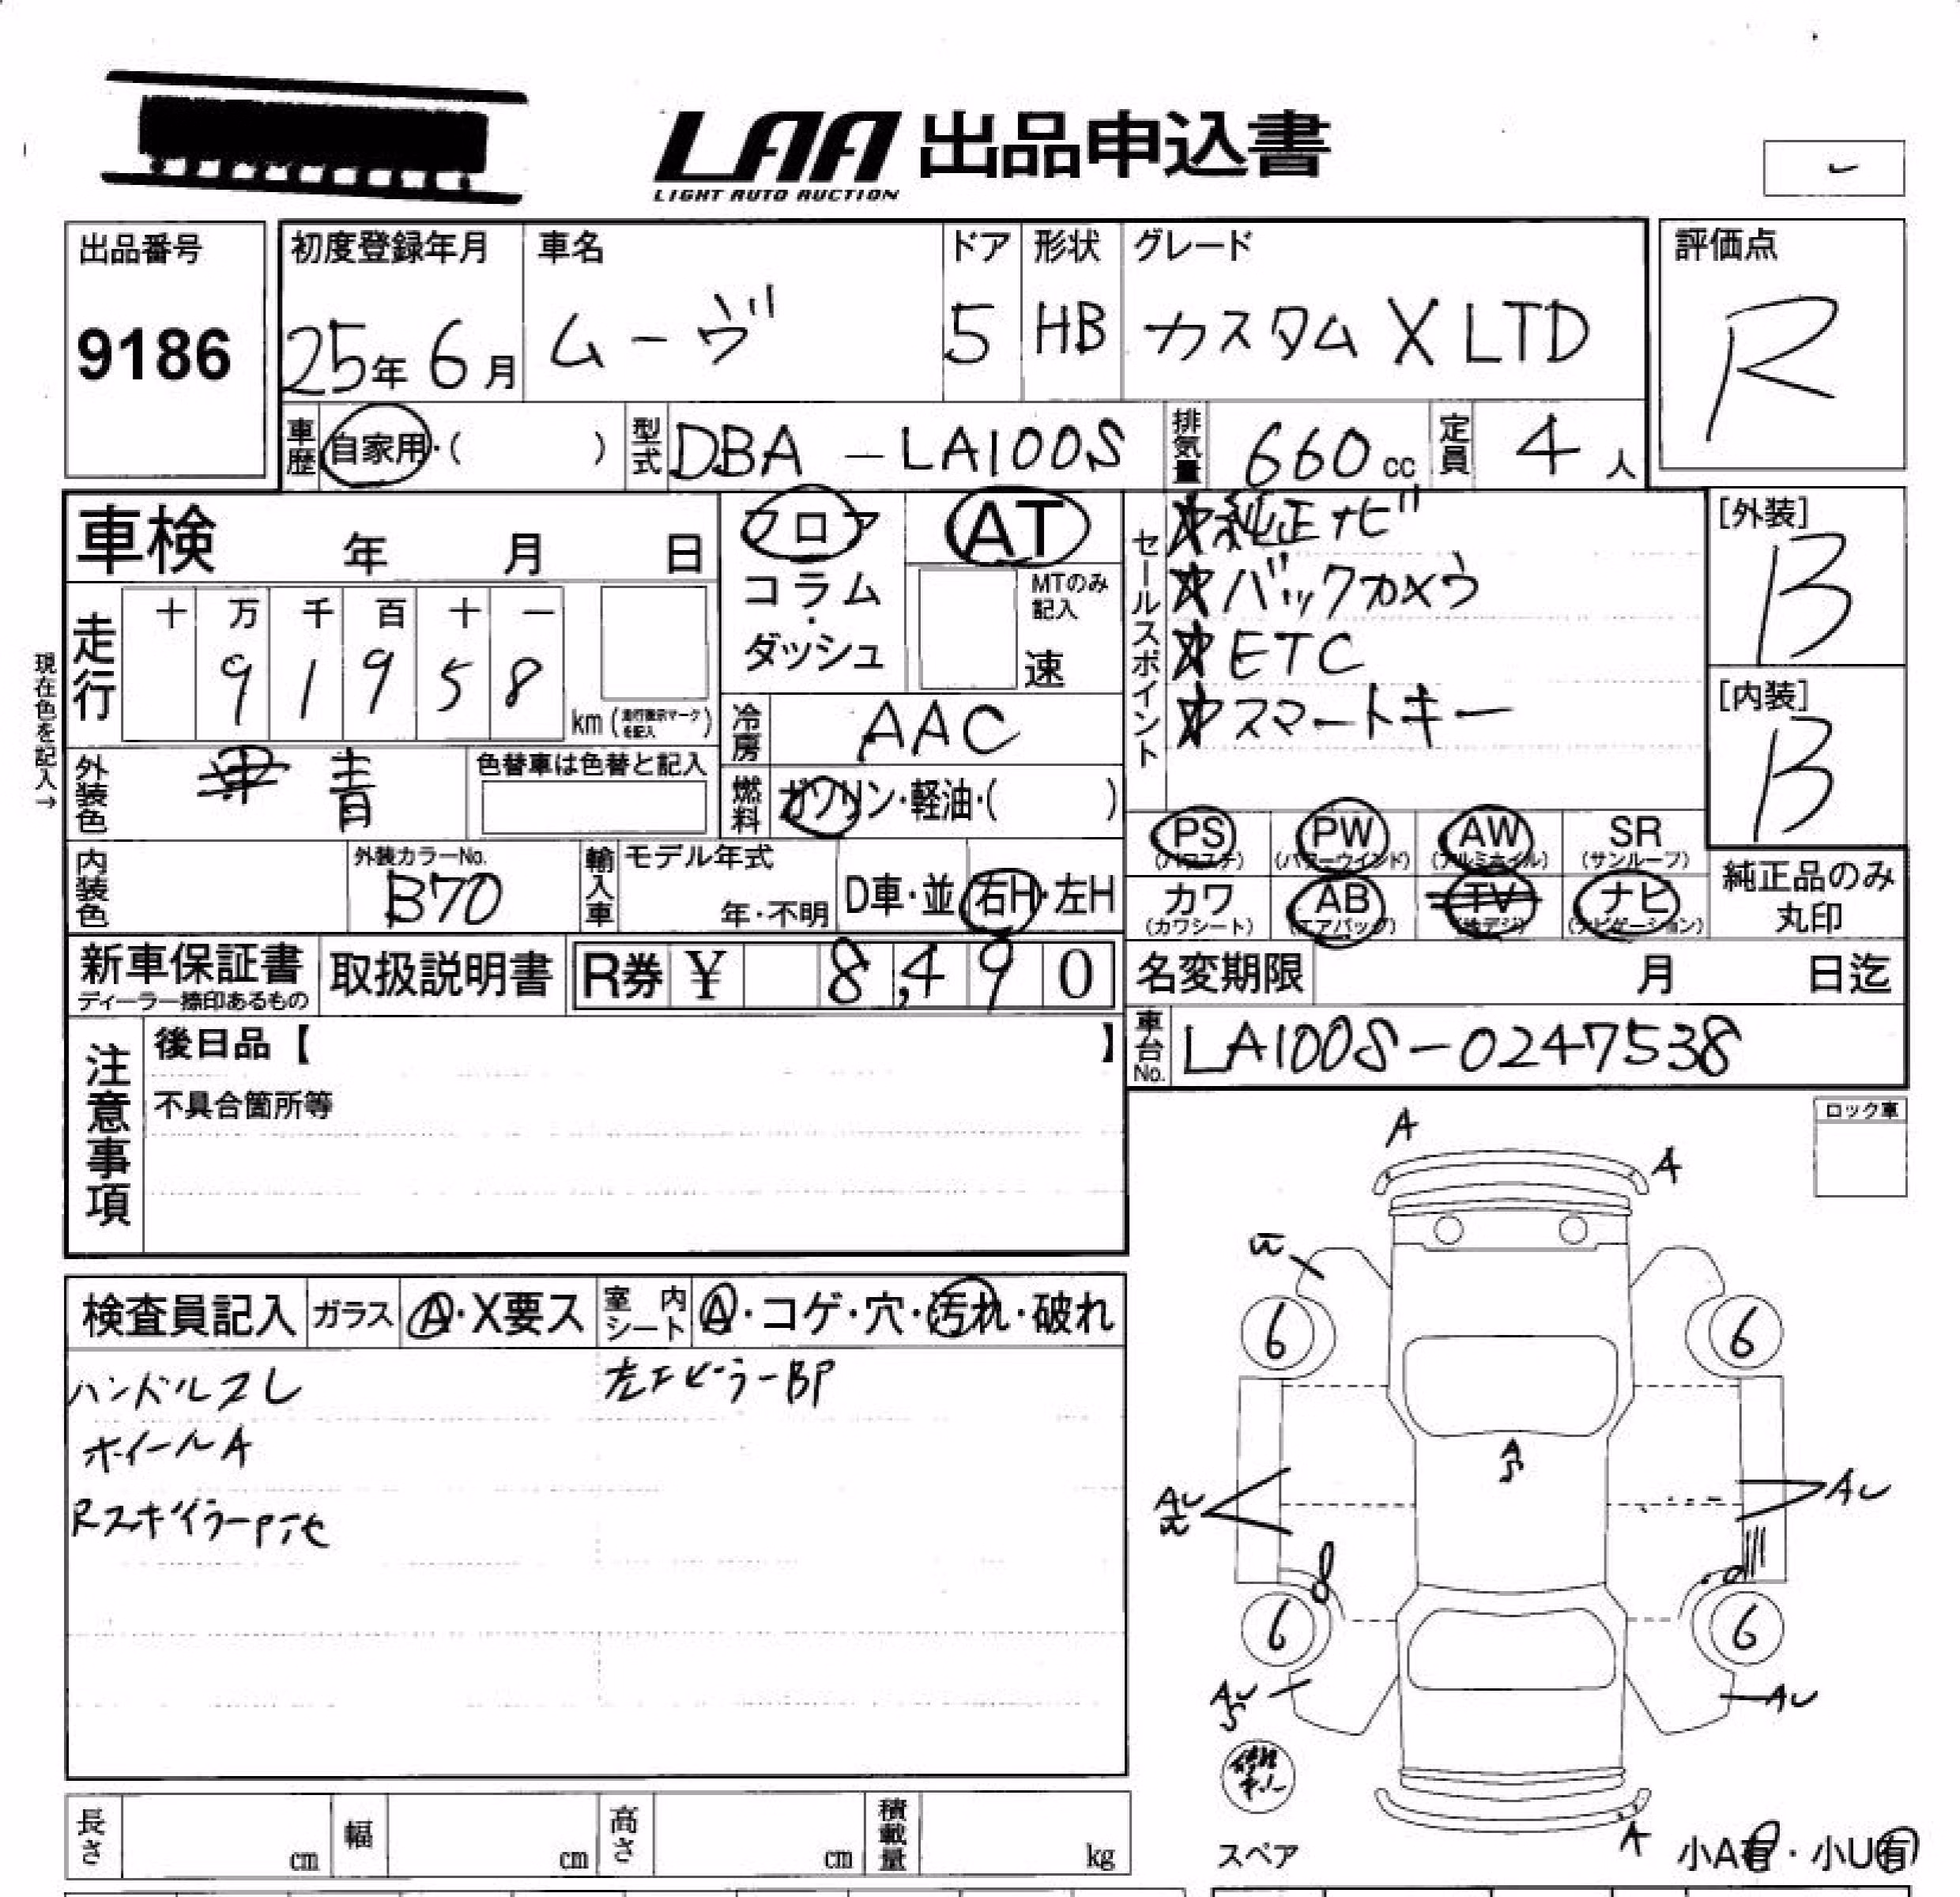 LAA 出品申込書
LIGHT AUTO AUCTION
出品番号
9186
初度登録年月
25年 6月
車名
ムーヴ
ドア
5
形状
HB
グレード
カスタム X LTD
評価点
R
車歴
自家用・( )
型式
DBA-LA100S
排気量
660 cc
定員
4 人
車検 年 月 日
フロア
コラム・ダッシュ
AT
MTのみ記入
速
セールスポイント
☆純正ナビ
☆バックカメラ
☆ETC
☆スマートキー
[外装]
B
[内装]
B
現在色を記入→
走行
十 万 千 百 十 一
9 1 9 5 8
km (走行表示マークを記入)
冷房
AAC
外装色
青
色替車は色替と記入
燃料
ガソリン・軽油・( )
PS
(パワステ)
PW
(パワーウインド)
AW
(アルミホイル)
SR
(サンルーフ)
内装色
外装カラーNo.
B70
輸入車
モデル年式
年・不明
D車・並
右H・左H
カワ
(カワシート)
AB
(エアバッグ)
TV
(地デジ)
ナビ
(ナビゲーション)
純正品のみ
丸印
新車保証書
ディーラー捺印あるもの
取扱説明書
R券 ¥ 8,490
名変期限 月 日迄
車台No.
LA100S-0247538
注意事項
後日品【 】
不具合箇所等
ロック車
検査員記入
ガラス
A・X要ス
室内シート
A・コゲ・穴・汚れ・破れ
ハンドルスレ
ホイールA
RスポイラーP
左Fピラー BP
A
A
6
6
A
S
AU
AU
6
6
AU
S
AU
A
スペア
小A有・小U有
長さ cm
幅 cm
高さ cm
積載量 kg